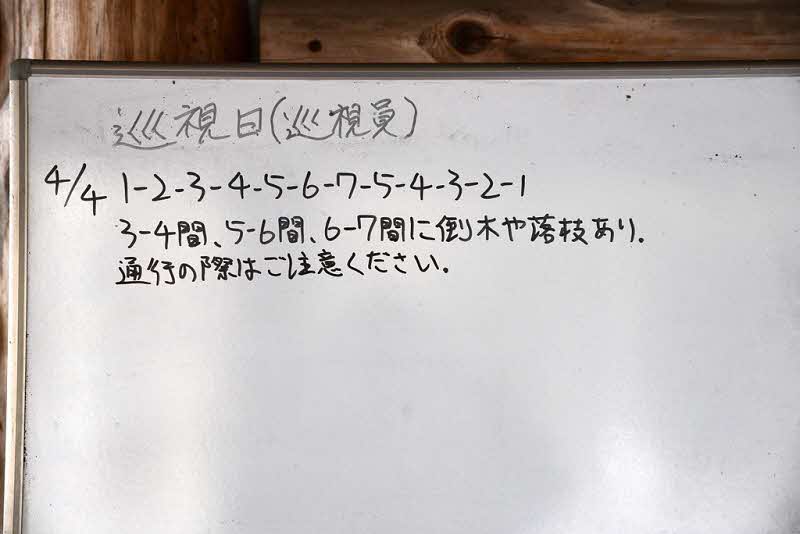 巡視日(巡視員)
4/4 1-2-3-4-5-6-7-5-4-3-2-1
3-4間、5-6間、6-7間に倒木や落枝あり.
通行の際はご注意ください.